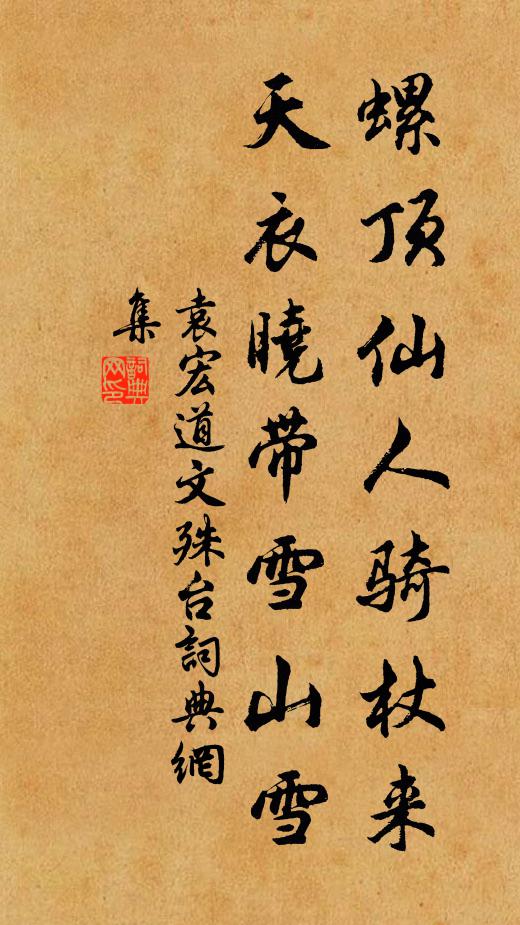 螺顶仙人骑杖来
天衣曉带雪山雪
袁宏道文殊台詞典網
集
詞典
网印